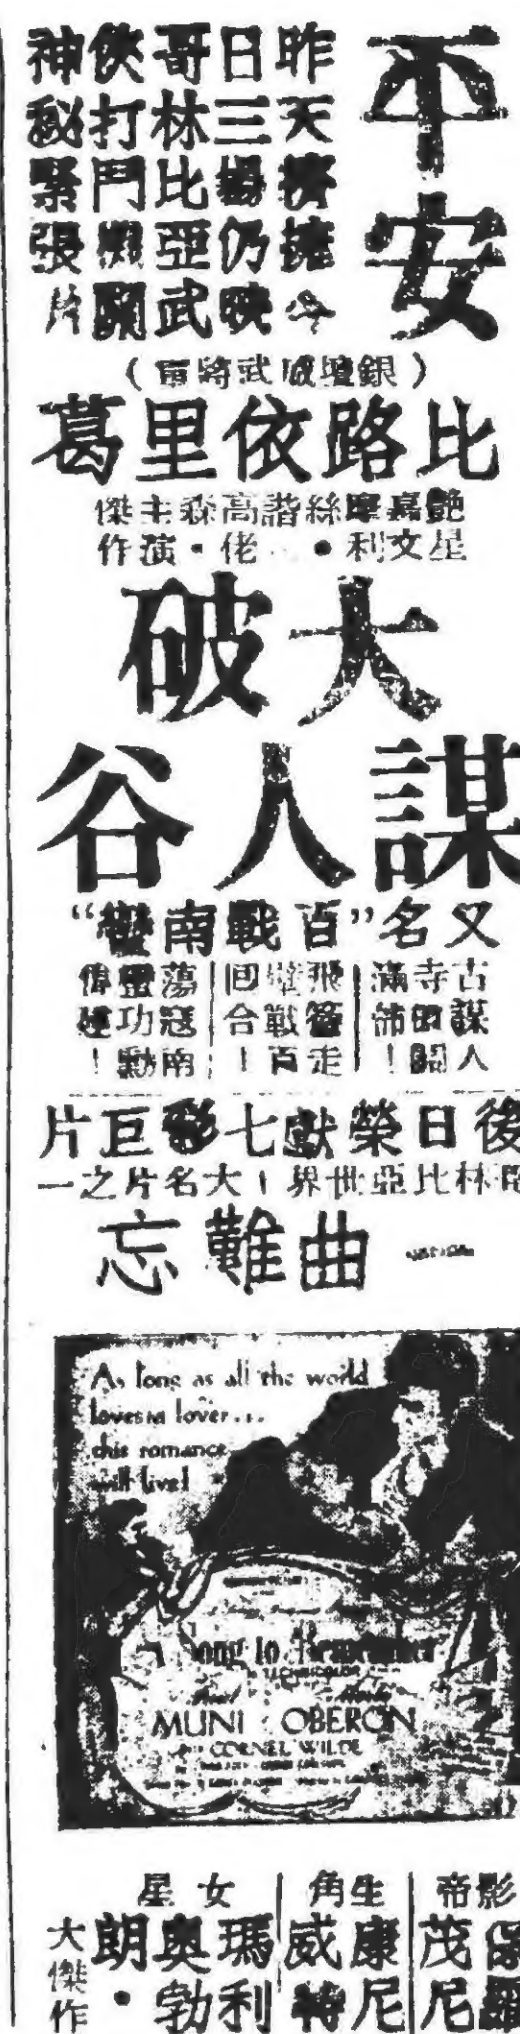 平安
昨天擠擁今
日三場仍映
哥林比亞武
俠打鬥機關
神秘緊張片
（銀壇威武將軍）
比路依里葛
艷星嘉文摩利・絲諧高佬・森主演傑作
大破
謀人谷
又名”百戰南蠻“
古寺滿
謀人佈！
飛簷走壁戰百回合！
蕩寇南蠻功勳偉建！
後日榮獻七彩巨片
林比亞世界大名片之一
一曲難忘
As long as all the world
loves a lover...
this romance
will live!
A Song to Remember
TECHNICOLOR
MUNI OBERON
CORNEL WILDE
影帝
保羅茂尼
生角
康尼威特
女星
瑪利奧勃朗・
大傑作